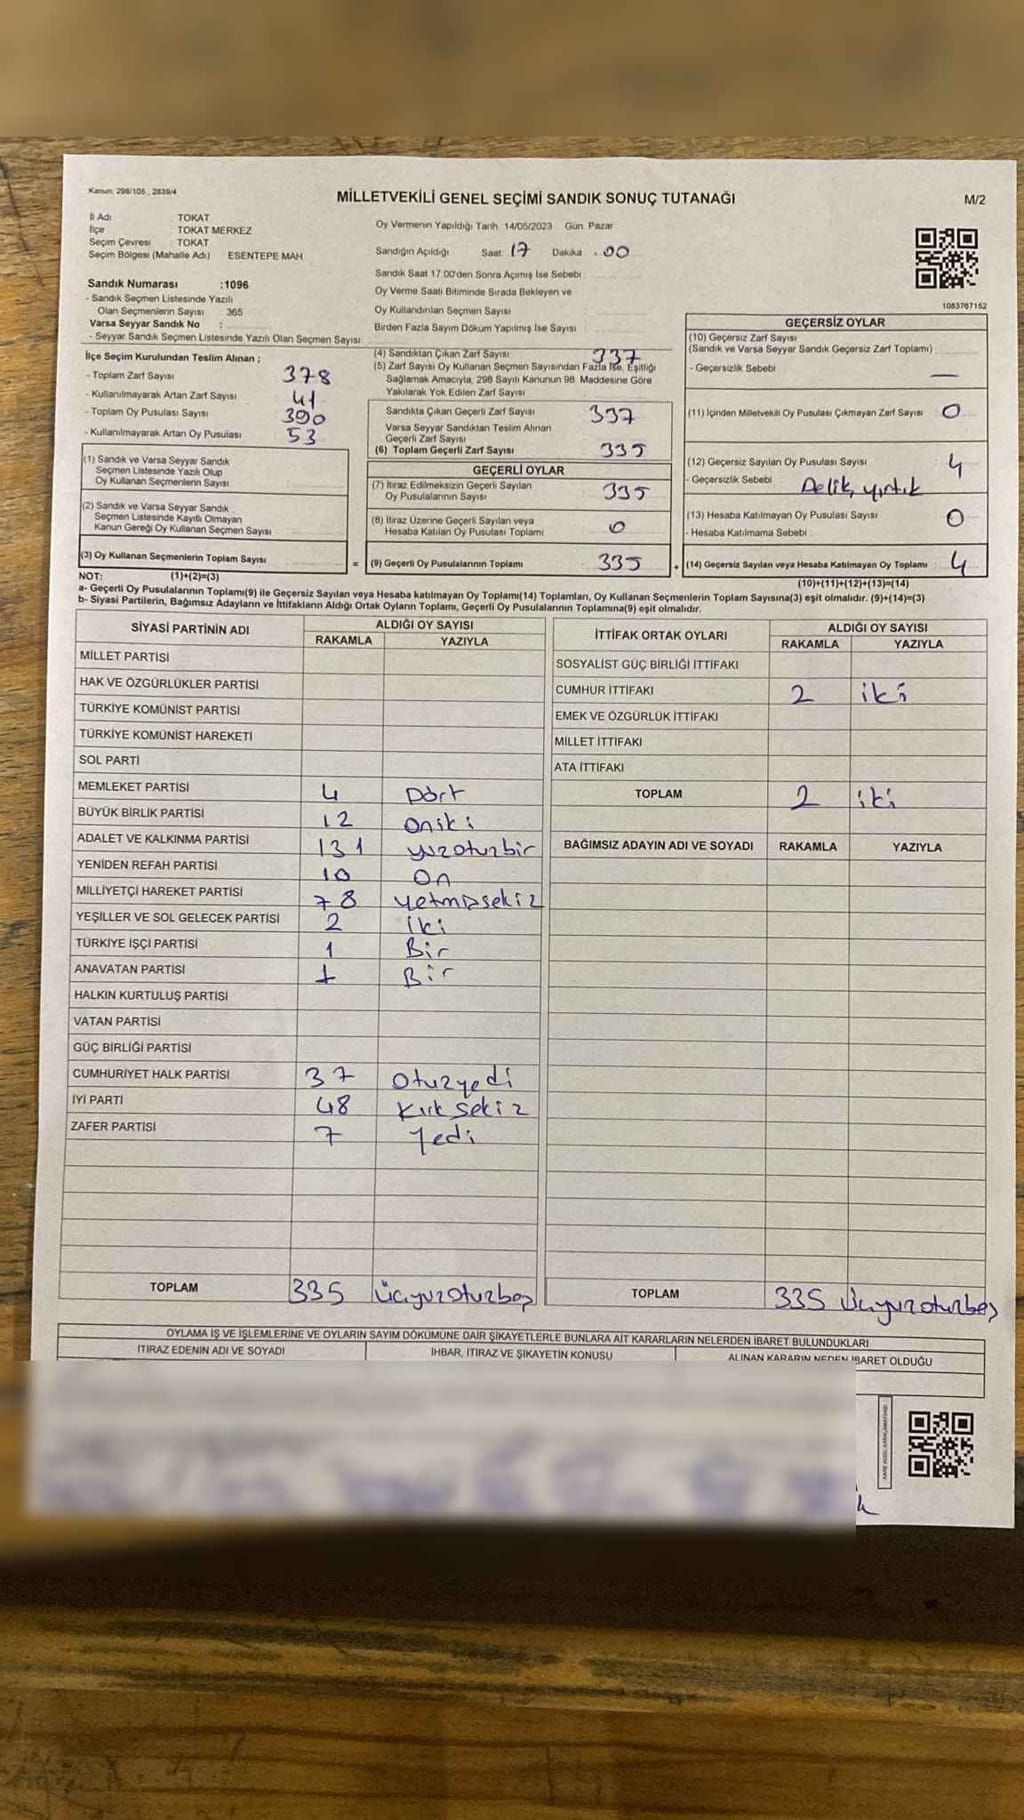 Kanun: 298/105 , 2839/4
MİLLETVEKİLİ GENEL SEÇİMİ SANDIK SONUÇ TUTANAĞI
M/2
İl Adı : TOKAT
İlçe : TOKAT MERKEZ
Seçim Çevresi : TOKAT
Seçim Bölgesi (Mahalle Adı) ESENTEPE MAH
Oy Vermenin Yapıldığı Tarih 14/05/2023 Gün Pazar
Sandığın Açıldığı Saat 17 Dakika . 00
Sandık Saat 17:00'den Sonra Açımış İse Sebebi
Oy Verme Saati Bitiminde Sırada Bekleyen ve
Oy Kullandırılan Seçmen Sayısı
Birden Fazla Sayım Döküm Yapılmış İse Sayısı
1083767152
Sandık Numarası :1096
- Sandık Seçmen Listesinde Yazılı
Olan Seçmenlerin Sayısı 365
Varsa Seyyar Sandık No :
- Seyyar Sandık Seçmen Listesinde Yazılı Olan Seçmen Sayısı
İlçe Seçim Kurulundan Teslim Alınan ;
- Toplam Zarf Sayısı 378
- Kullanılmayarak Artan Zarf Sayısı 41
- Toplam Oy Pusulası Sayısı 390
- Kullanılmayarak Artan Oy Pusulası 53
(1) Sandık ve Varsa Seyyar Sandık
Seçmen Listesinde Yazılı Olup
Oy Kullanan Seçmenlerin Sayısı
(2) Sandık ve Varsa Seyyar Sandık
Seçmen Listesinde Kayıtlı Olmayan
Kanun Gereği Oy Kullanan Seçmen Sayısı
(3) Oy Kullanan Seçmenlerin Toplam Sayısı
(4) Sandıktan Çıkan Zarf Sayısı 337
(5) Zarf Sayısı Oy Kullanan Seçmen Sayısından Fazla İse, Eşitliği
Sağlamak Amacıyla, 298 Sayılı Kanunun 98. Maddesine Göre
Yakılarak Yok Edilen Zarf Sayısı
Sandıkta Çıkan Geçerli Zarf Sayısı 337
Varsa Seyyar Sandıktan Teslim Alınan
Geçerli Zarf Sayısı
(6) Toplam Geçerli Zarf Sayısı 335
GEÇERLİ OYLAR
(7) İtiraz Edilmeksizin Geçerli Sayılan
Oy Pusulalarının Sayısı 335
(8) İtiraz Üzerine Geçerli Sayılan veya
Hesaba Katılan Oy Pusulası Toplamı 0
= (9) Geçerli Oy Pusulalarının Toplamı 335 +
GEÇERSİZ OYLAR
(10) Geçersiz Zarf Sayısı
(Sandık ve Varsa Seyyar Sandık Geçersiz Zarf Toplamı)
- Geçersizlik Sebebi —
(11) İçinden Milletvekili Oy Pusulası Çıkmayan Zarf Sayısı 0
(12) Geçersiz Sayılan Oy Pusulası Sayısı 4
- Geçersizlik Sebebi Delik, yırtık
(13) Hesaba Katılmayan Oy Pusulası Sayısı 0
- Hesaba Katılmama Sebebi
(14) Geçersiz Sayılan veya Hesaba Katılmayan Oy Toplamı 4
NOT: (1)+(2)=(3)
(10)+(11)+(12)+(13)=(14)
a- Geçerli Oy Pusulalarının Toplamı(9) ile Geçersiz Sayılan veya Hesaba katılmayan Oy Toplamı(14) Toplamları, Oy Kullanan Seçmenlerin Toplam Sayısına(3) eşit olmalıdır. (9)+(14)=(3)
b- Siyasi Partilerin, Bağımsız Adayların ve İttifakların Aldığı Ortak Oyların Toplamı, Geçerli Oy Pusulalarının Toplamına(9) eşit olmalıdır.
SİYASİ PARTİNİN ADI ALDIĞI OY SAYISI
RAKAMLA YAZIYLA
MİLLET PARTİSİ
HAK VE ÖZGÜRLÜKLER PARTİSİ
TÜRKİYE KOMÜNİST PARTİSİ
TÜRKİYE KOMÜNİST HAREKETİ
SOL PARTİ
MEMLEKET PARTİSİ 4 Dört
BÜYÜK BİRLİK PARTİSİ 12 oniki
ADALET VE KALKINMA PARTİSİ 131 yüzotuzbir
YENİDEN REFAH PARTİSİ 10 on
MİLLİYETÇİ HAREKET PARTİSİ 78 yetmişsekiz
YEŞİLLER VE SOL GELECEK PARTİSİ 2 iki
TÜRKİYE İŞÇİ PARTİSİ 1 Bir
ANAVATAN PARTİSİ 1 Bir
HALKIN KURTULUŞ PARTİSİ
VATAN PARTİSİ
GÜÇ BİRLİĞİ PARTİSİ
CUMHURİYET HALK PARTİSİ 37 otuzyedi
İYİ PARTİ 48 kırksekiz
ZAFER PARTİSİ 7 yedi
TOPLAM 335 üçyüzotuzbeş
İTTİFAK ORTAK OYLARI ALDIĞI OY SAYISI
RAKAMLA YAZIYLA
SOSYALİST GÜÇ BİRLİĞİ İTTİFAKI
CUMHUR İTTİFAKI 2 iki
EMEK VE ÖZGÜRLÜK İTTİFAKI
MİLLET İTTİFAKI
ATA İTTİFAKI
TOPLAM 2 iki
BAĞIMSIZ ADAYIN ADI VE SOYADI RAKAMLA YAZIYLA
TOPLAM 335 üçyüzotuzbeş
OYLAMA İŞ VE İŞLEMLERİNE VE OYLARIN SAYIM DÖKÜMÜNE DAİR ŞİKAYETLERLE BUNLARA AİT KARARLARIN NELERDEN İBARET BULUNDUKLARI
İTİRAZ EDENİN ADI VE SOYADI İHBAR, İTİRAZ VE ŞİKAYETİN KONUSU ALINAN KARARIN NEDEN İBARET OLDUĞU